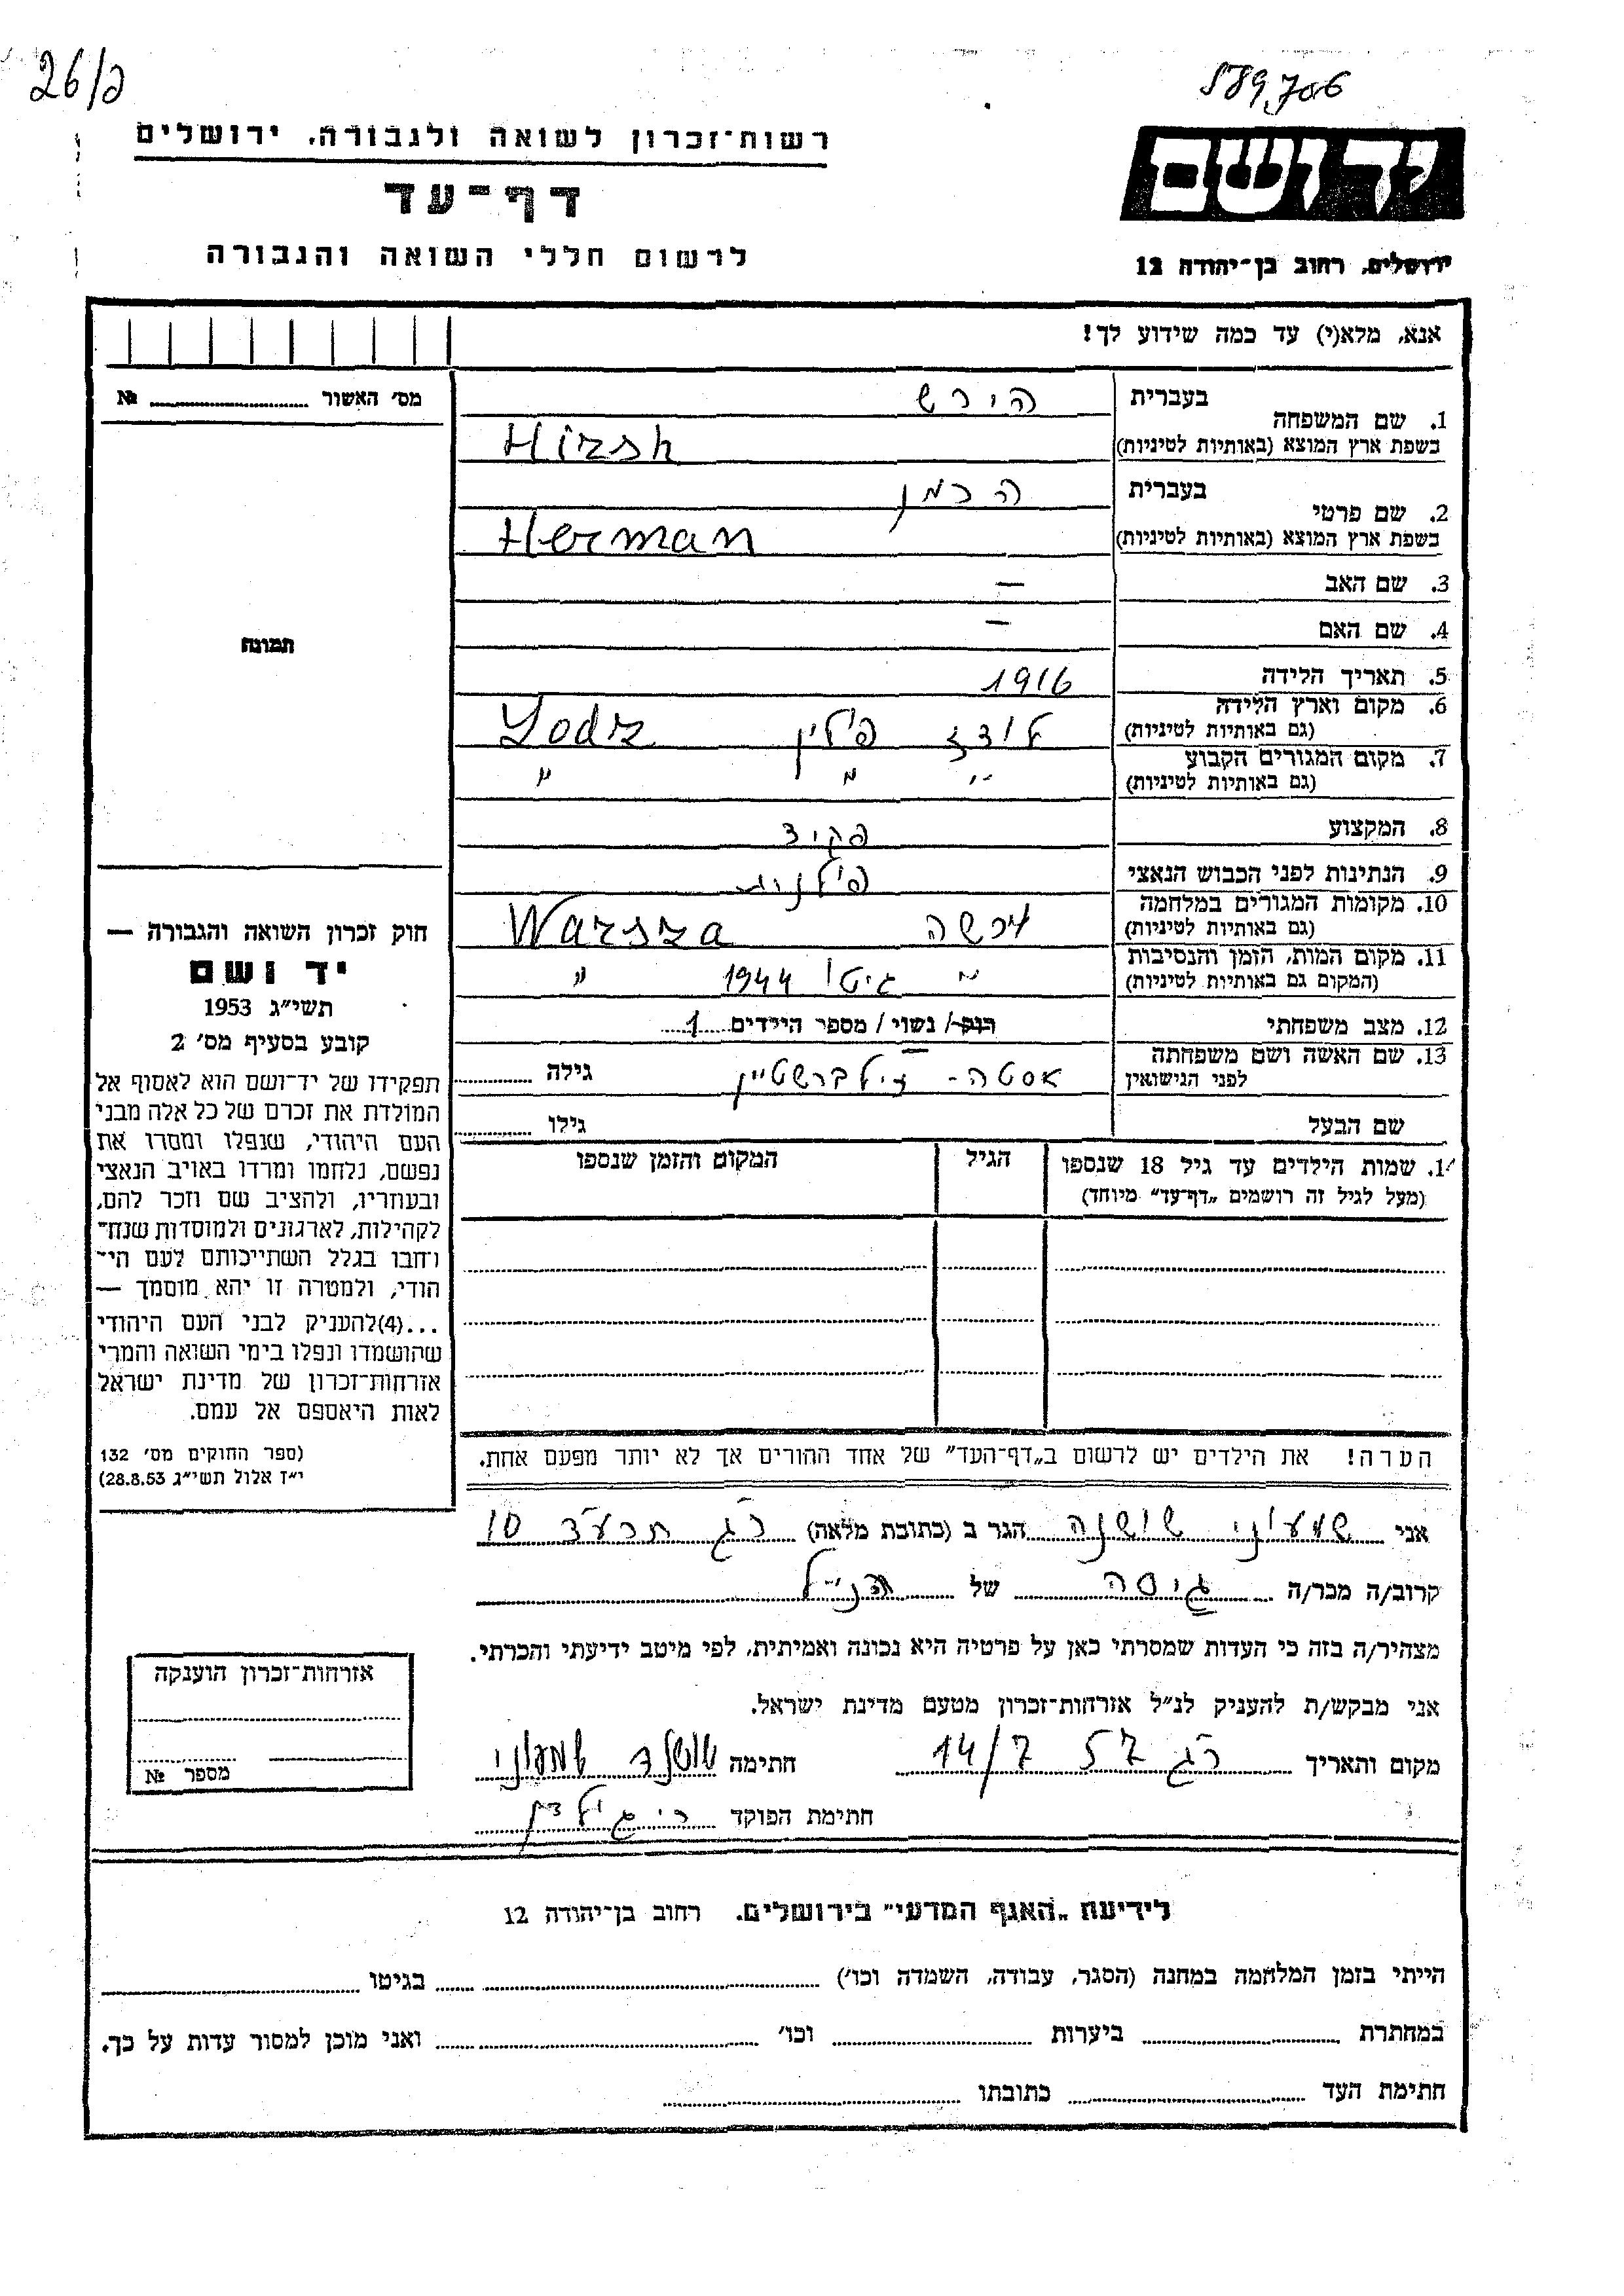 26/ם
589,706
רשות־זכרון לשואה ולגבורה, ירושלים
דף־עד
לרשום חללי השואה והגבורה
יד ושם
ירושלים, רחוב בן־יהודה 12
אנא, מלא(י) עד כמה שידוע לך!
מס׳ האשור № ........
1. שם המשפחה
בעברית הירש
בשפת ארץ המוצא (באותיות לטיניות) Hirsh
2. שם פרטי
בעברית הרמן
בשפת ארץ המוצא (באותיות לטיניות) Herman
3. שם האב —
4. שם האם —
תמונה
5. תאריך הלידה 1916
6. מקום וארץ הלידה (גם באותיות לטיניות) לודז פולין Lodz
7. מקום המגורים הקבוע (גם באותיות לטיניות) " " "
8. המקצוע פקיד
9. הנתינות לפני הכבוש הנאצי פולנית
10. מקומות המגורים במלחמה (גם באותיות לטיניות) ורשה Warsza
11. מקום המות, הזמן והנסיבות (המקום גם באותיות לטיניות) " גיטו 1944 "
12. מצב משפחתי רווק/ נשוי/ מספר הילדים 1
13. שם האשה ושם משפחתה לפני הנישואין אסטה - זילברשטיין גילה ........
שם הבעל גילו ........
חוק זכרון השואה והגבורה —
יד ושם
תשי״ג 1953
קובע בסעיף מס׳ 2
תפקידו של יד־ושם הוא לאסוף אל
המולדת את זכרם של כל אלה מבני
העם היהודי, שנפלו ומסרו את
נפשם, נלחמו ומרדו באויב הנאצי
ובעוזריו, ולהציב שם וזכר להם,
לקהילות, לארגונים ולמוסדות שנח־
רבו בגלל השתייכותם לעם הי־
הודי, ולמטרה זו יהא מוסמך —
...(4)להעניק לבני העם היהודי
שהושמדו ונפלו בימי השואה והמרי
אזרחות־זכרון של מדינת ישראל
לאות היאספם אל עמם.
(ספר החוקים מס׳ 132
י״ז אלול תשי״ג 28.8.53)
14. שמות הילדים עד גיל 18 שנספו
(מעל לגיל זה רושמים „דף־עד״ מיוחד)
הגיל
המקום והזמן שנספו
הערה! את הילדים יש לרשום ב„דף־העד״ של אחד ההורים אך לא יותר מפעם אחת.
אני שמעוני שושנה הגר ב (כתובת מלאה) רג תרע״ד 10
קרוב/ה מכר/ה גיסה של הנ״ל
מצהיר/ה בזה כי העדות שמסרתי כאן על פרטיה היא נכונה ואמיתית, לפי מיטב ידיעתי והכרתי.
אני מבקש/ת להעניק לנ״ל אזרחות־זכרון מטעם מדינת ישראל.
מקום והתאריך רג 57 14/7 חתימה שושנה שמעוני
חתימת הפוקד
אזרחות־זכרון הוענקה
מספר №
לידיעת „האגף המדעי״ בירושלים, רחוב בן־יהודה 12
הייתי בזמן המלחמה במחנה (הסגר, עבודה, השמדה וכו׳) ........ בגיטו ........
במחתרת ........ ביערות ........ וכו׳ ........ ואני מוכן למסור עדות על כך.
חתימת העד ........ כתובתו ........